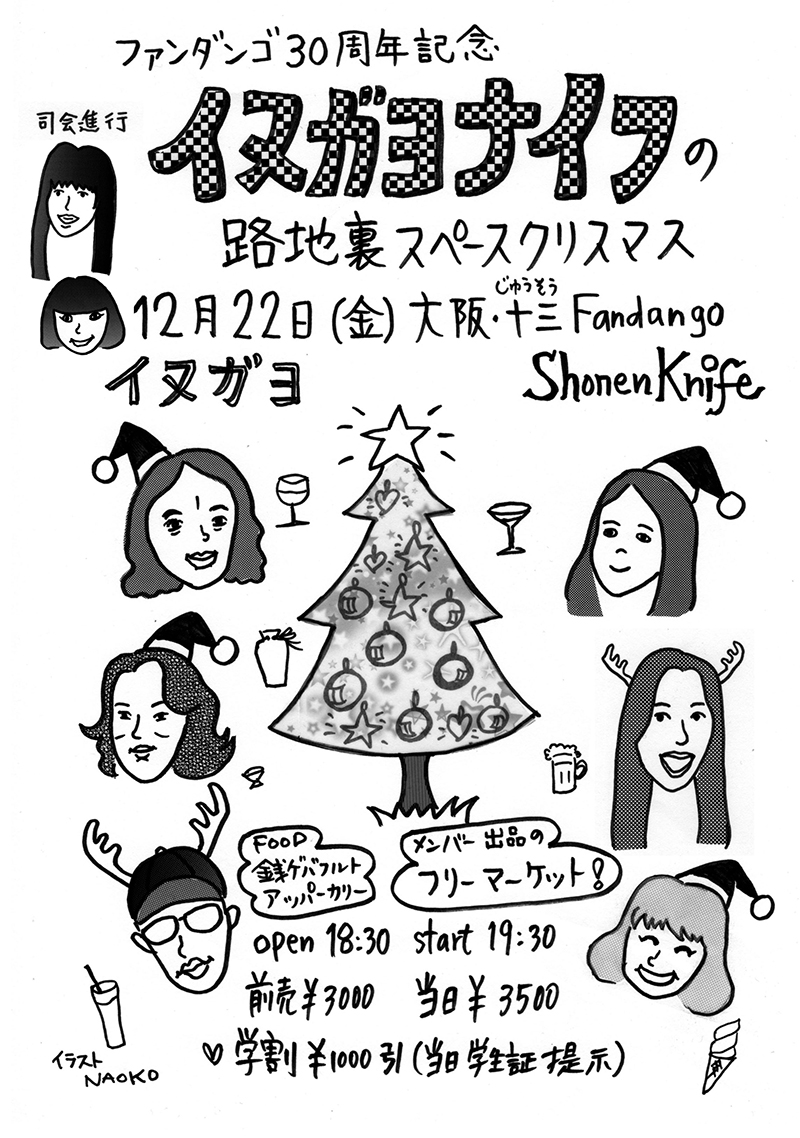 ファンダンゴ30周年記念
司会進行
イヌガヨナイフの
路地裏スペースクリスマス
じゅうそう
12月22日(金)大阪・十三Fandango
イヌガヨ
Shonen Knife
FOOD
銭ゲバフルト
アッパーカリー
メンバー出品の
フリーマーケット!
open 18:30 start 19:30
前売¥3000 当日¥3500
♡学割¥1000引(当日学生証提示)
イラスト
NAOKO